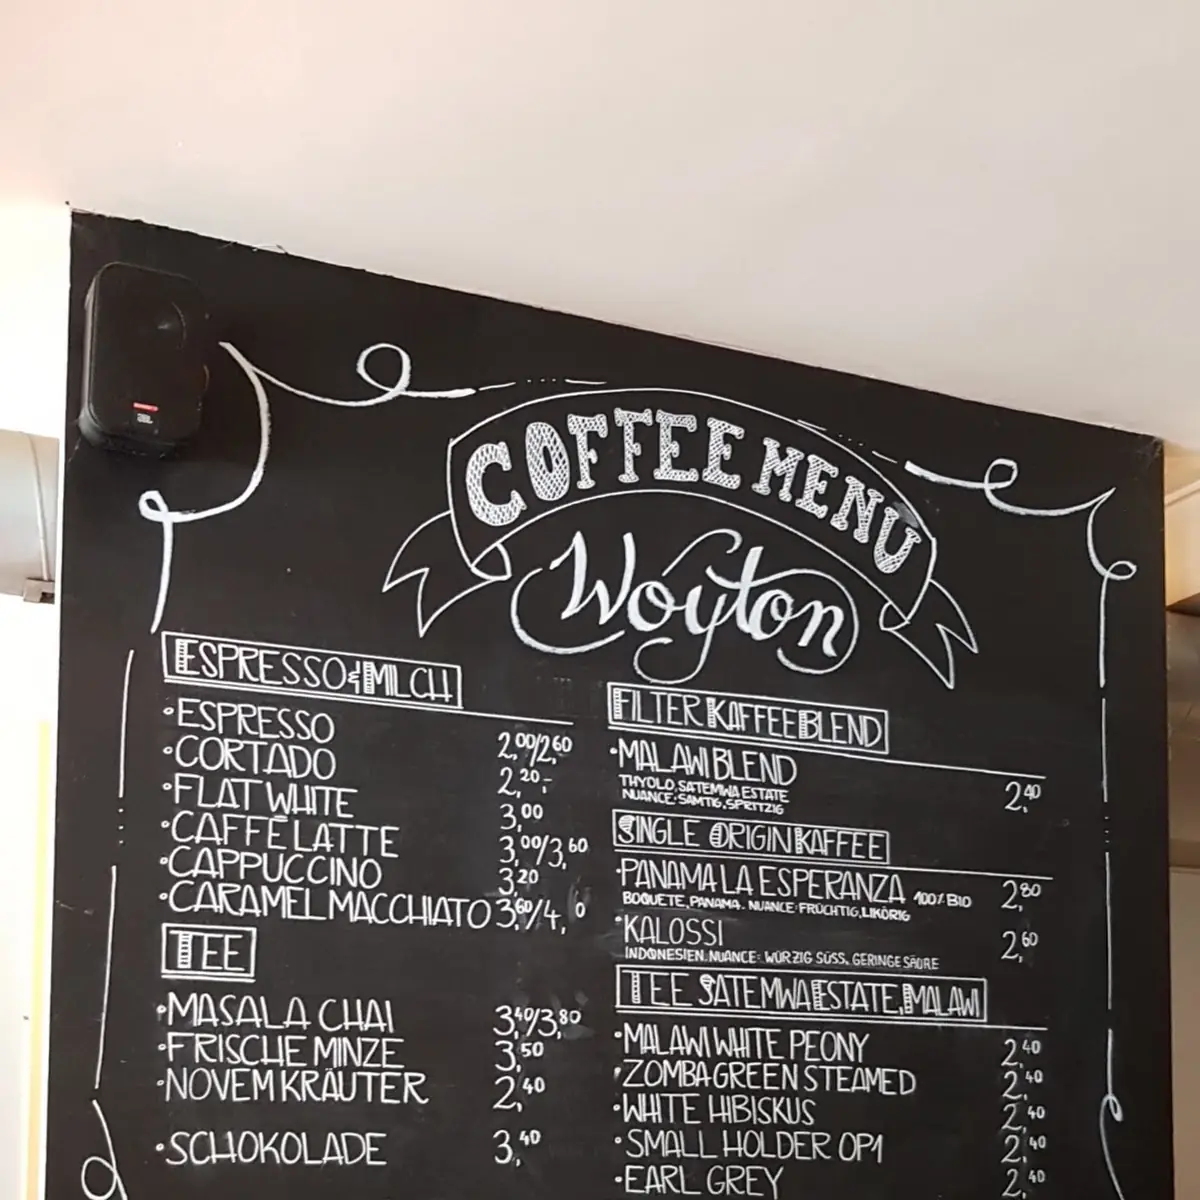 COFFEE MENU
Woyton
ESPRESSO & MILCH
•ESPRESSO 2,00/2,60
•CORTADO 2,20-
•FLAT WHITE 3,00
•CAFFÈ LATTE 3,00/3,60
•CAPPUCCINO 3,20
•CARAMEL MACCHIATO 3,60/4, 0
TEE
•MASALA CHAI 3,40/3,80
•FRISCHE MINZE 3,50
•NOVEM KRÄUTER 2,40
•SCHOKOLADE 3,40
FILTER KAFFEE BLEND
•MALAWI BLEND 2,40
THYOLO, SATEMWA ESTATE
NUANCE: SAMTIG, SPRITZIG
SINGLE ORIGIN KAFFEE
•PANAMA LA ESPERANZA 100% BIO 2,80
BOQUETE, PANAMA. NUANCE: FRÜCHTIG, LIKÖRIG
•KALOSSI 2,60
INDONESIEN. NUANCE: WÜRZIG SÜSS, GERINGE SÄURE
TEE SATEMWA ESTATE, MALAWI
•MALAWI WHITE PEONY 2,40
•ZOMBA GREEN STEAMED 2,40
•WHITE HIBISKUS 2,40
•SMALL HOLDER OP1 2,40
•EARL GREY 2,40